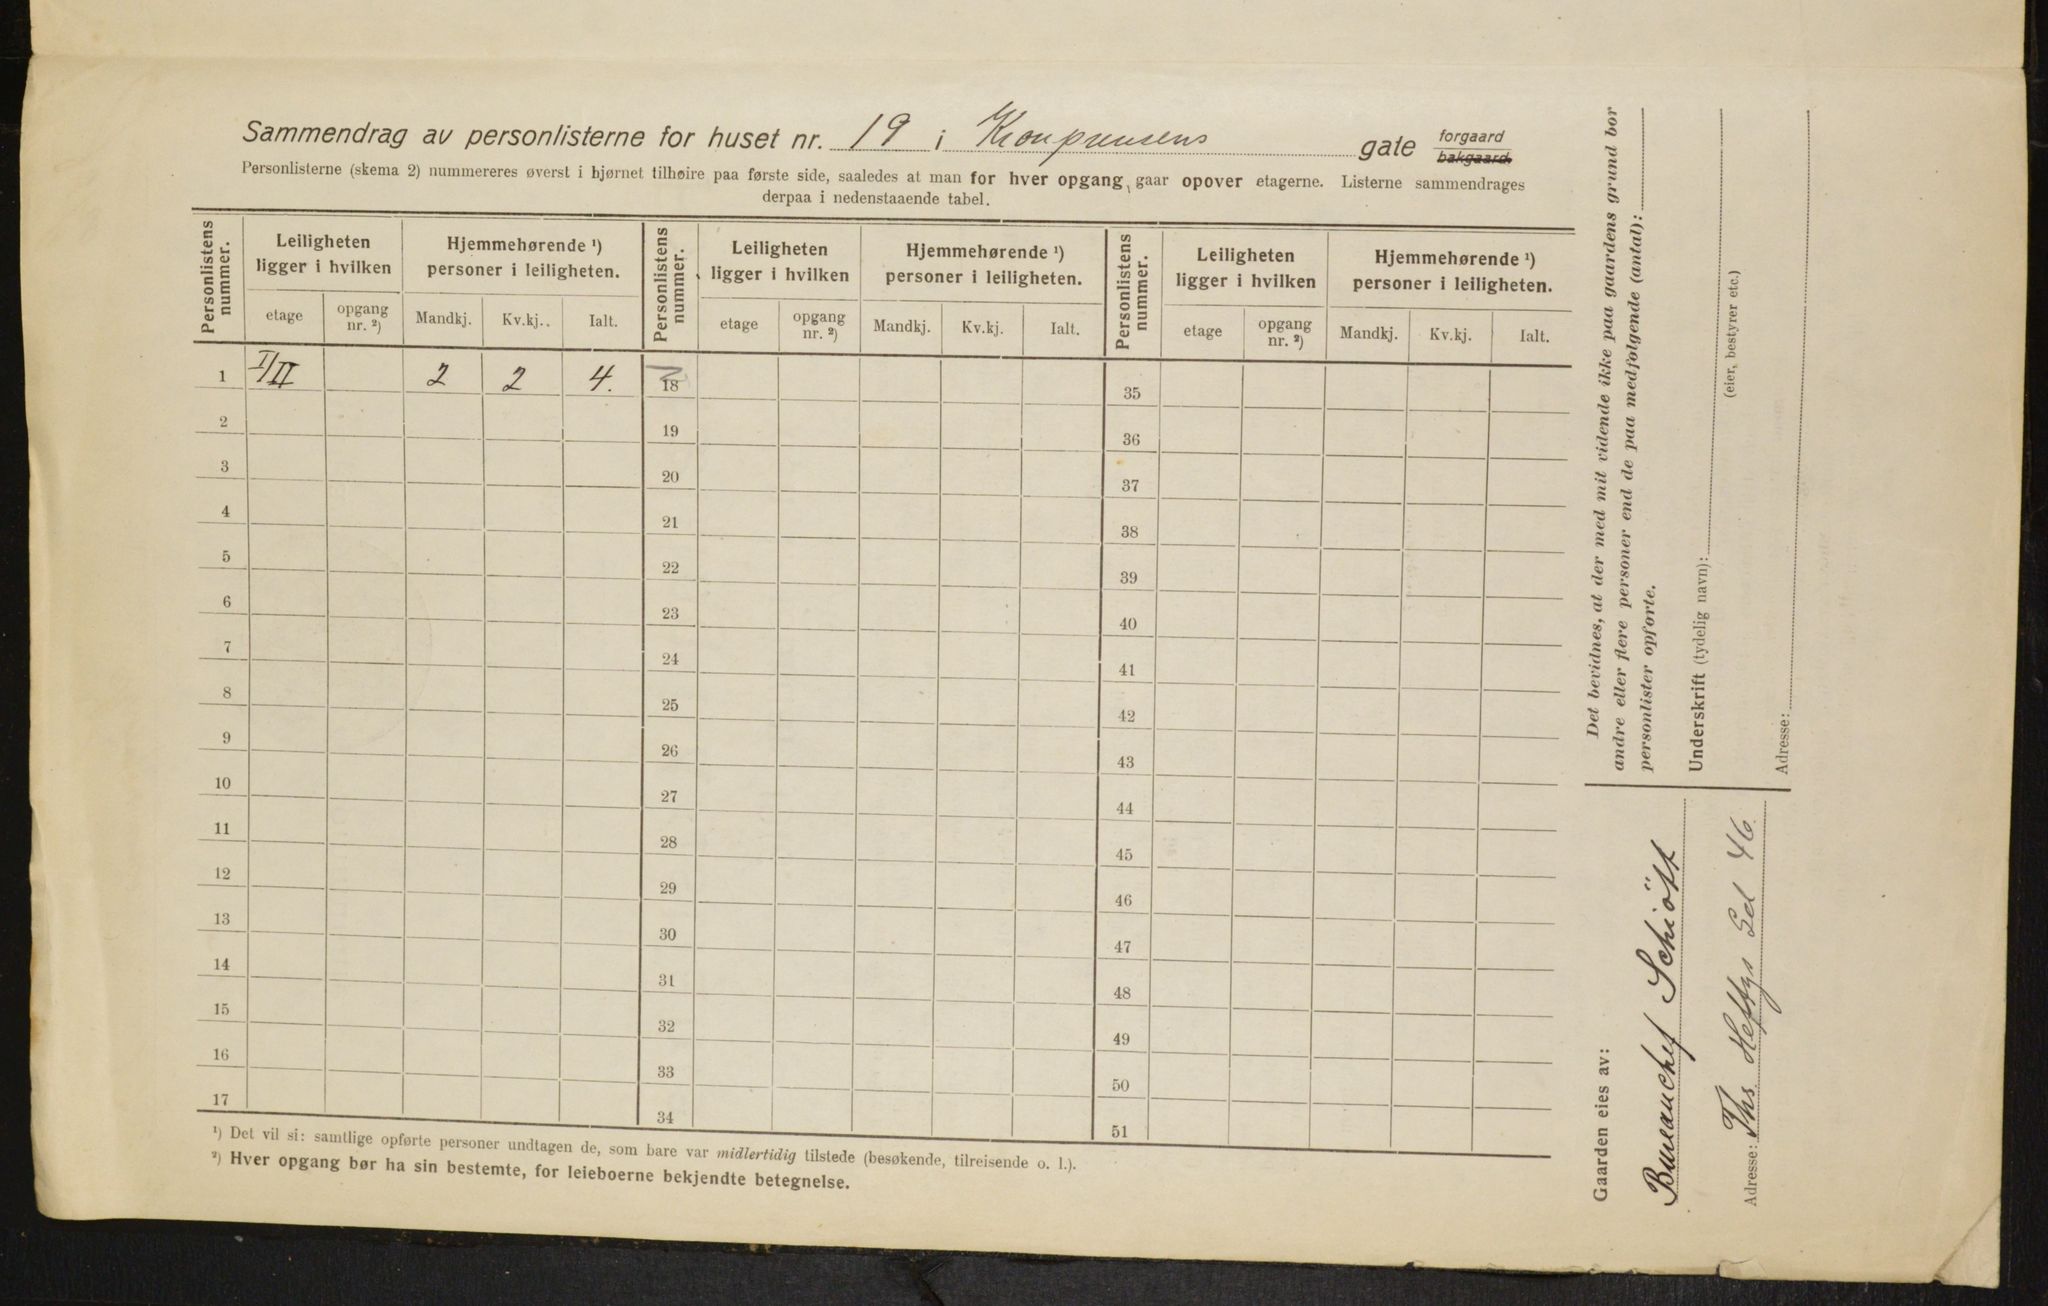 Sammendrag av personlisterne for huset nr. 19 i Kronprinsens gate forgaard bakgaard.
Personlisterne (skema 2) nummereres øverst i hjørnet tilhøire paa første side, saaledes at man for hver opgang gaar opover etagerne. Listerne sammendrages
derpaa i nedenstaaende tabel.
Personlistens nummer. Leiligheten ligger i hvilken Hjemmehørende ¹) personer i leiligheten. Personlistens nummer. Leiligheten ligger i hvilken Hjemmehørende ¹) personer i leiligheten. Personlistens nummer. Leiligheten ligger i hvilken Hjemmehørende ¹) personer i leiligheten.
etage opgang nr. ²) Mandkj. Kv.kj.. Ialt. etage opgang nr. ²) Mandkj. Kv.kj. Ialt. etage opgang nr. ²) Mandkj. Kv.kj. Ialt.
1 I/II 2 2 4. 18 35
2 19 36
3 20 37
4 21 38
5 22 39
6 23 40
7 24 41
8 25 42
9 26 43
10 27 44
11 28 45
12 29 46
13 30 47
14 31 48
15 32 49
16 33 50
17 34 51
¹) Det vil si: samtlige opførte personer undtagen de, som bare var midlertidig tilstede (besøkende, tilreisende o. l.).
²) Hver opgang bør ha sin bestemte, for leieboerne bekjendte betegnelse.
Det bevidnes, at der med mit vidende ikke paa gaardens grund bor
andre eller flere personer end de paa medfølgende (antal):
personlister opførte.
Underskrift (tydelig navn):
(eier, bestyrer etc.)
Adresse:
Gaarden eies av:
Bureauchef Schiött
Adresse: Ths. Heftys Gd 46.